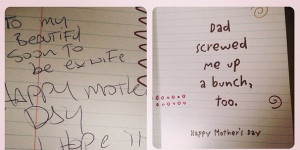 To my
Beautiful
Soon To
be ex wife
Happy mother
Day
Hope it
Dad
screwed
me up
a bunch,
too.
Happy Mother's Day